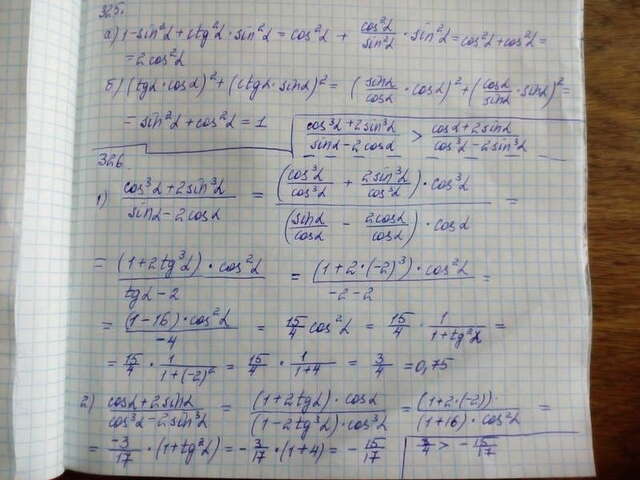 325.
а) 1-sin²α+ctg²α·sin²α=cos²α + cos²α/sin²α·sin²α=cos²α+cos²α=
=2cos²α
б) (tgα·cosα)²+(ctgα·sinα)² = (sinα/cosα·cosα)²+(cosα/sinα·sinα)²=
= sin²α+cos²α=1
(cos³α+2sin³α)/(sinα-2cosα) > (cosα+2sinα)/(cos³α-2sin³α)
326
1) (cos³α+2sin³α)/(sinα-2cosα) = ((cos³α/cos³α + 2sin³α/cos³α)·cos³α)/((sinα/cosα - 2cosα/cosα)·cosα) =
= ((1+2tg³α)·cos²α)/(tgα-2) = ((1+2·(-2)³)·cos²α)/(-2-2) =
= ((1-16)·cos²α)/(-4) = 15/4 cos²α = 15/4 · 1/(1+tg²α) =
= 15/4 · 1/(1+(-2)²) = 15/4 · 1/(1+4) = 3/4 =0,75
2) (cosα+2sinα)/(cos³α-2sin³α) = ((1+2tgα)·cosα)/((1-2tg³α)·cos³α) = ((1+2·(-2))·)/((1+16)·cos²α) =
= -3/17 ·(1+tg²α)= -3/17 ·(1+4)= -15/17
3/4 > -15/17